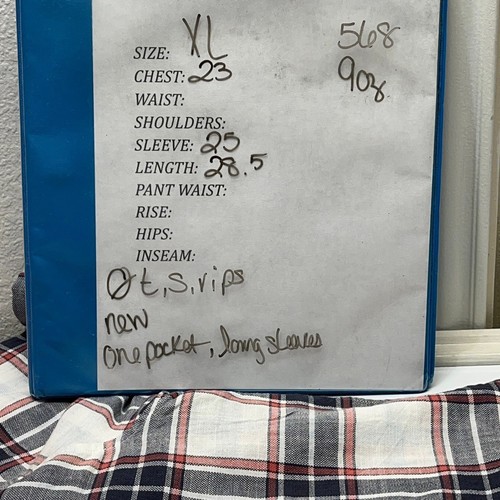 SIZE: XL 568
CHEST: 23 9oz
WAIST:
SHOULDERS:
SLEEVE: 25
LENGTH: 28.5
PANT WAIST:
RISE:
HIPS:
INSEAM:
Ø t, s, rips
new
one pocket, long sleeves